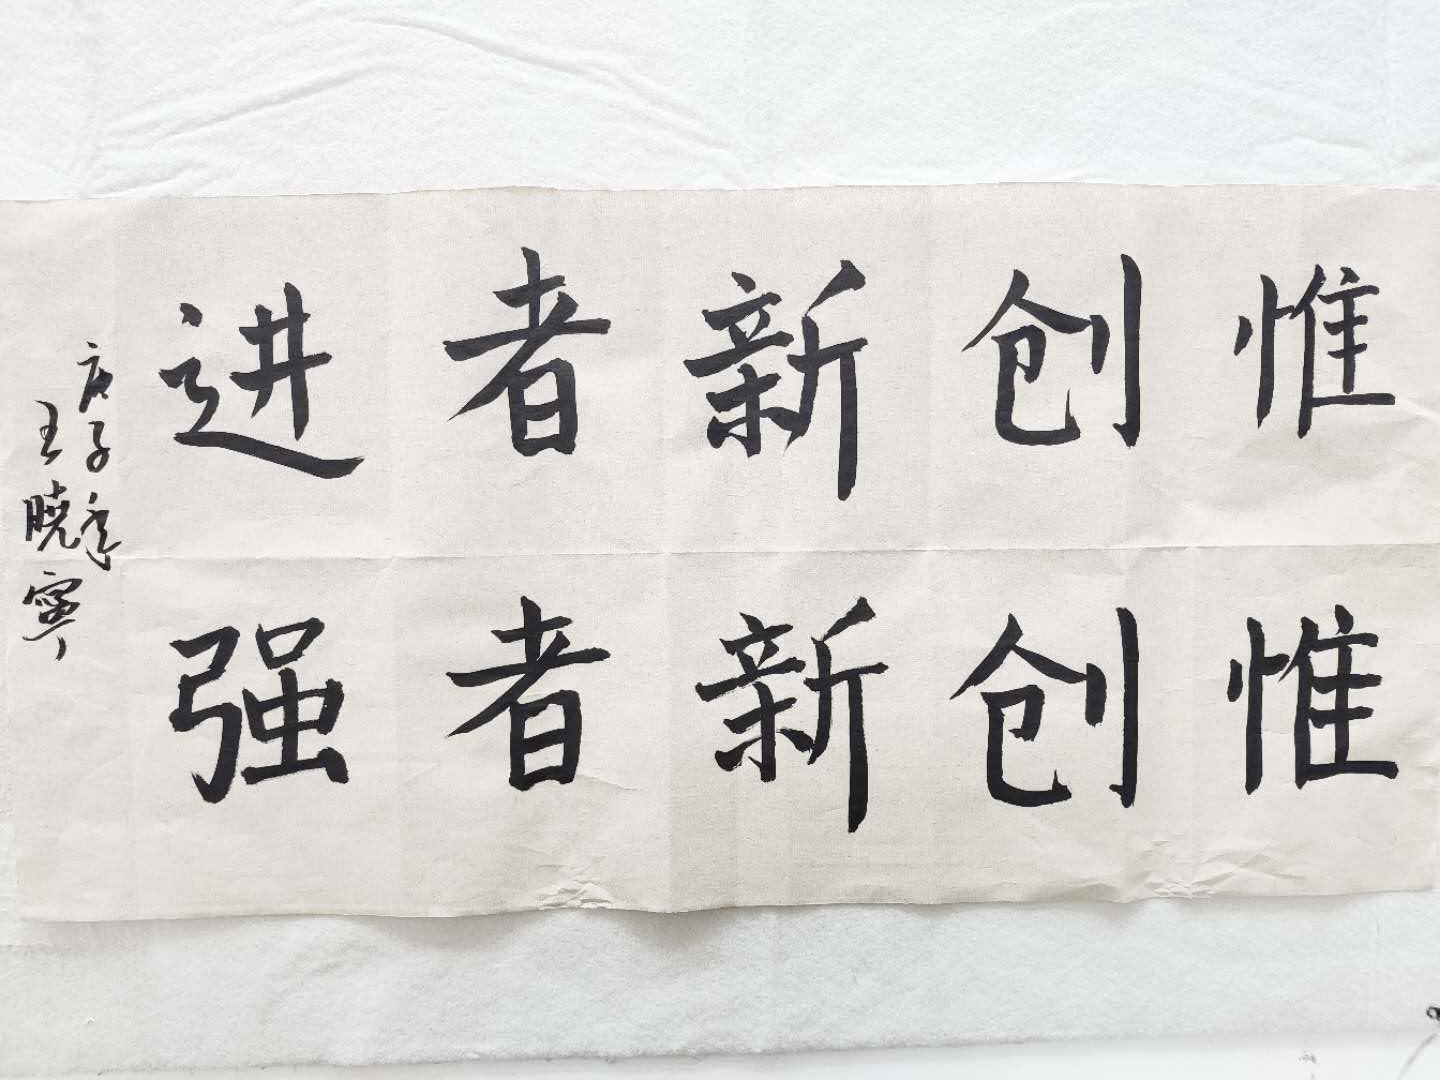 惟创新者进
惟创新者强
庚子年
王晓寧